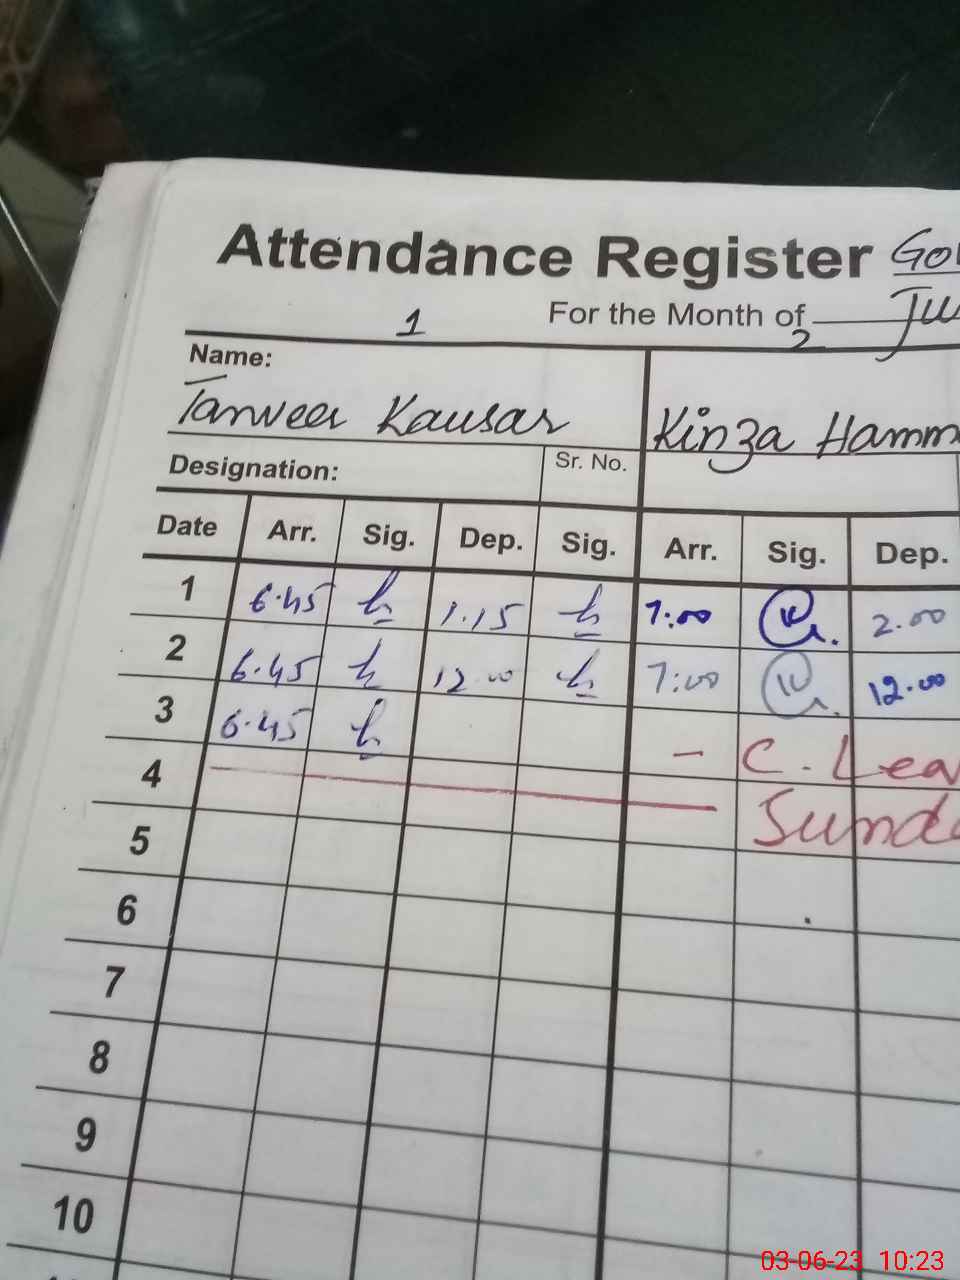 Attendance Register
For the Month of
1
2
Name:
Tanveer Kausar
Kinza
Designation:
Sr. No.
Date Arr. Sig. Dep. Sig. Arr. Sig. Dep.
1 6.45 1.15 7:00 2.00
2 6.45 12.00 7:00 12.00
3 6.45 - C.
4
5
6
7
8
9
10
03-06-23 10:23